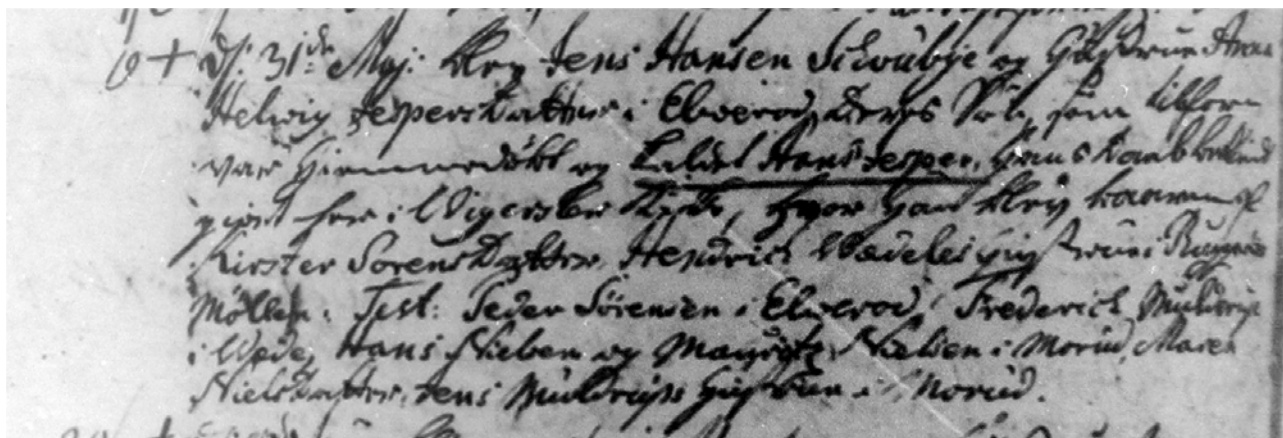 d. 31de Maj: blev Jens Hansen Schoubye og Hustrue Anna
Helvig Jespersdatter i Elverod, deres Søn, som tilforn
var hiemmedøbt og kaldet Hans Jesper, hans Daab
her i Wigerslev Kirke, hvor hand blev baaren af
Kirsten Sørensdatter, Hendrich Wædeles Hustrue i
Mølle. Test: Peder Sørensen i Elverod, Frederich Muldrup
i Wæde, Hans Nielsen og Mauritz Nielsen i Morud, Maren
Nielsdatter, Jens Muldrups Hustrue i Morud.